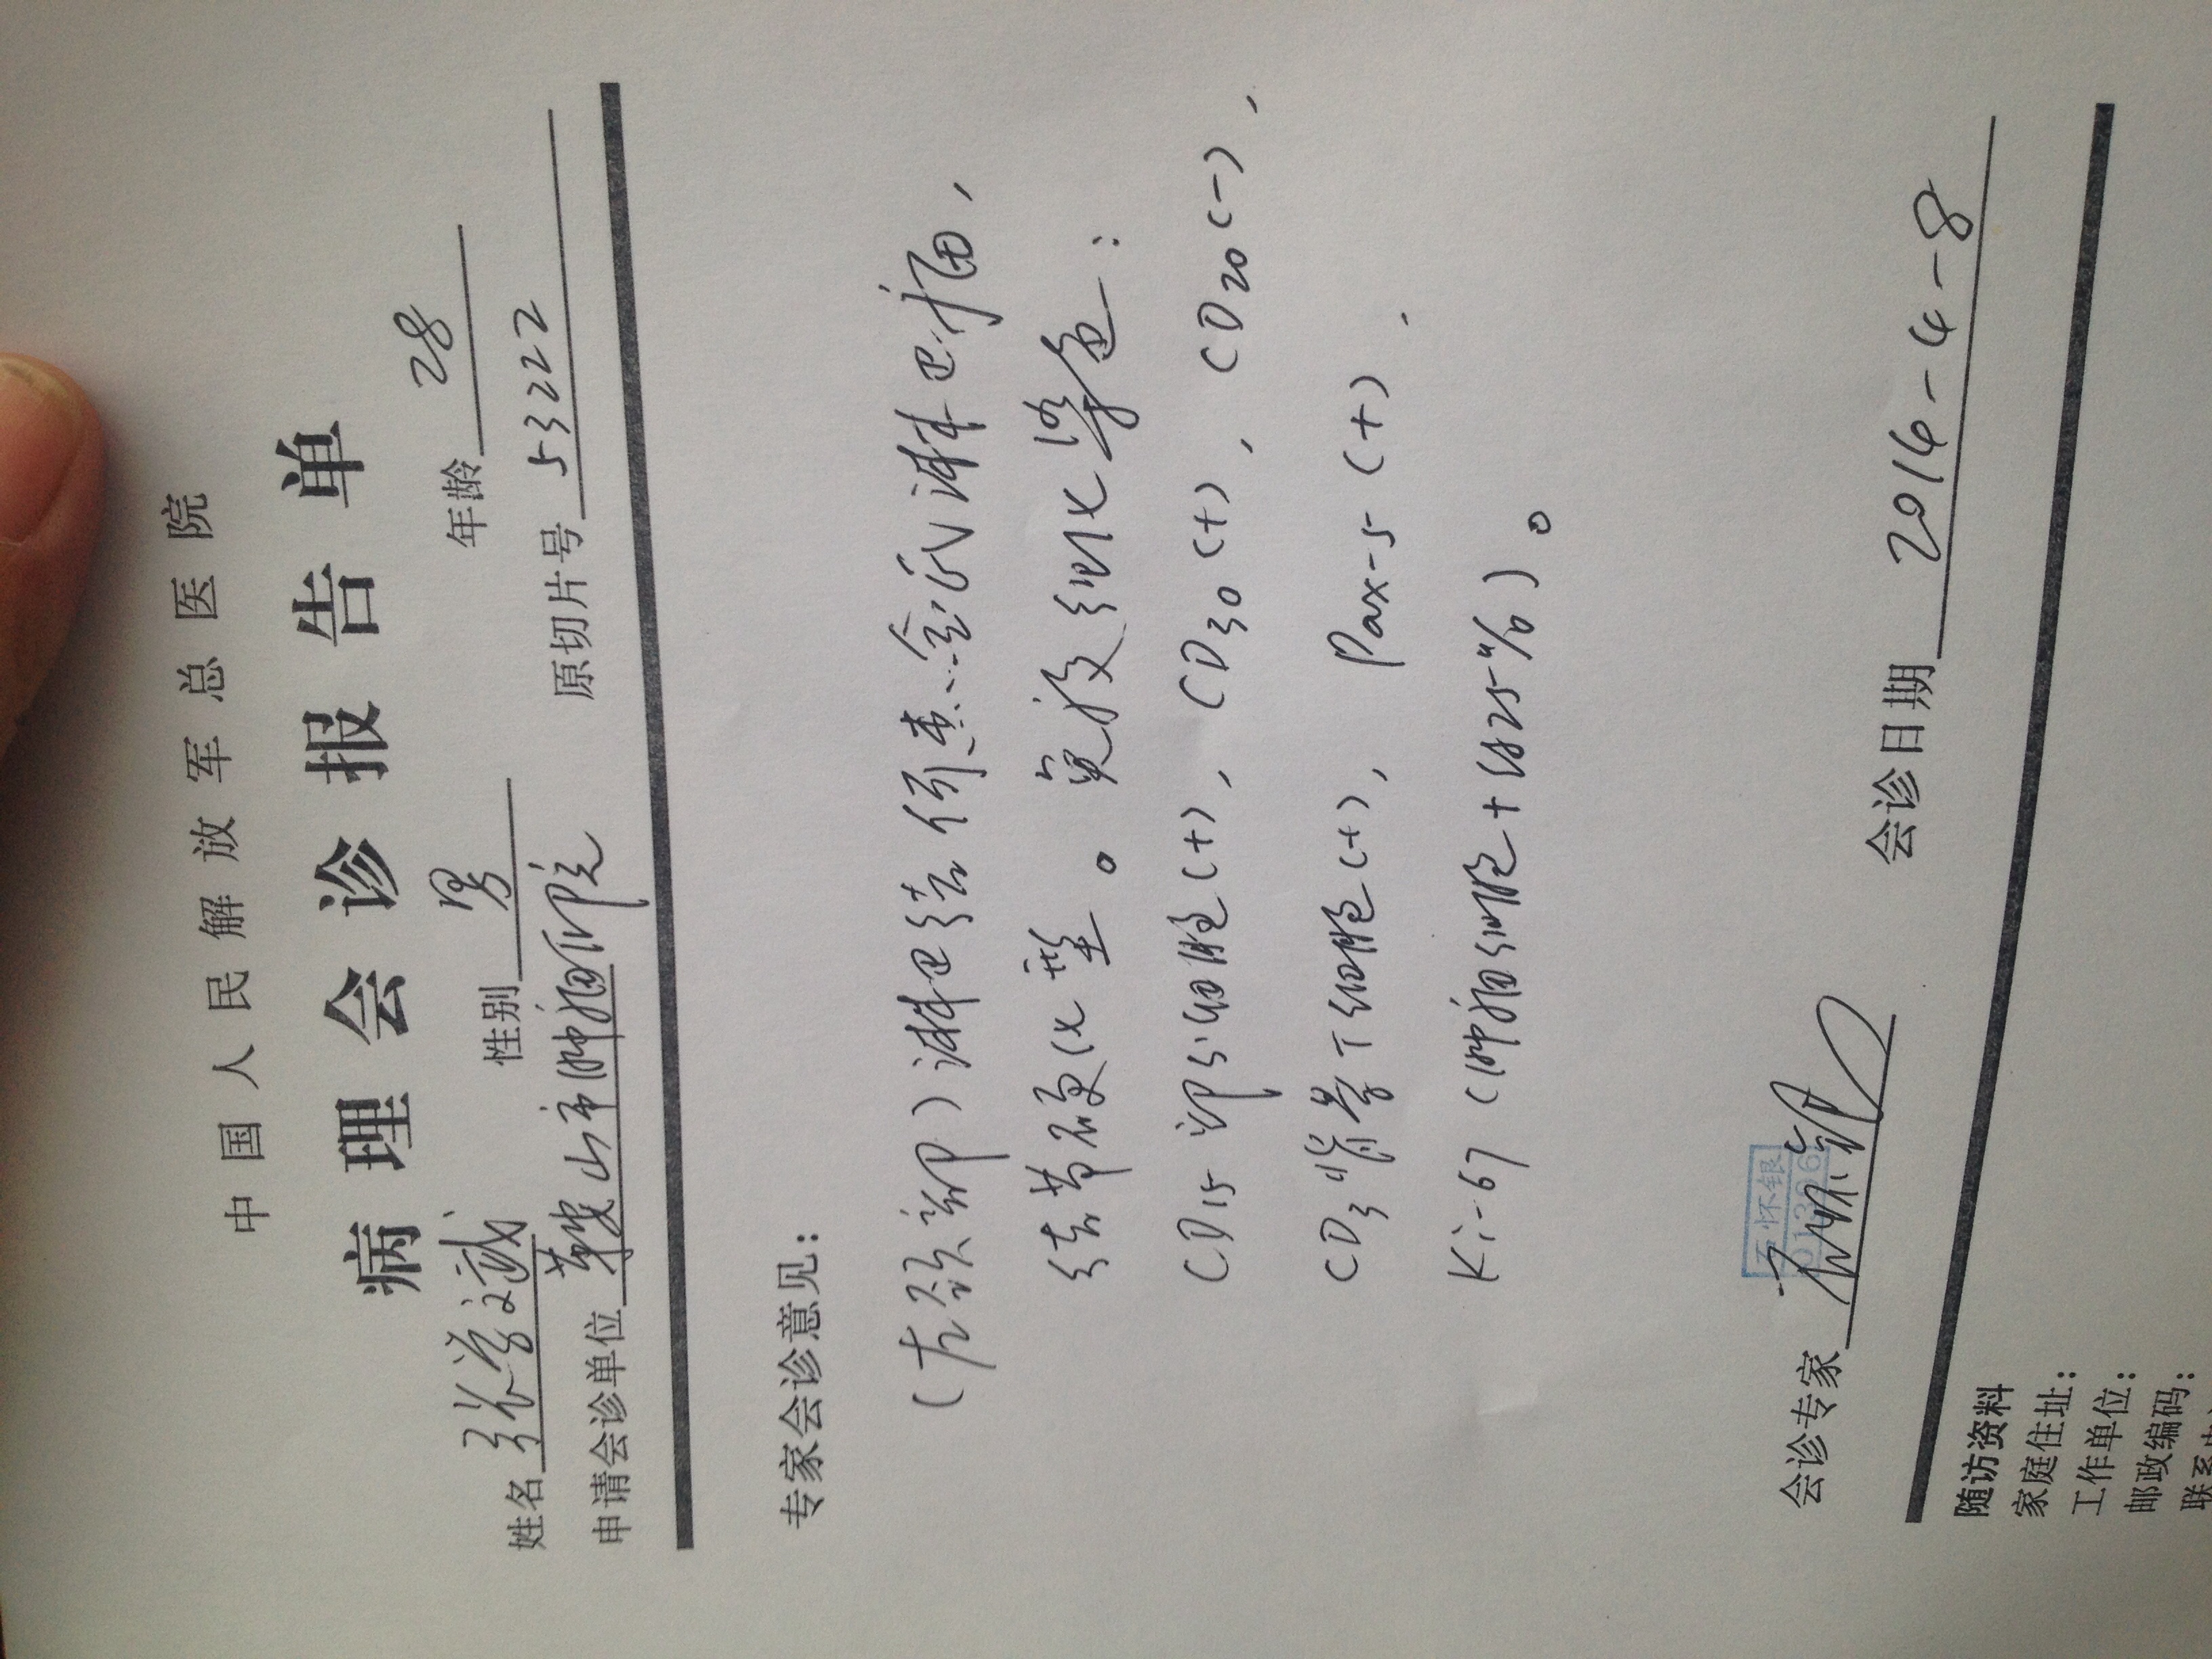 中国人民解放军总医院
病理会诊报告单
姓名 张学斌 性别 男 年龄 28
申请会诊单位 鞍山市肿瘤医院 原切片号 53222
专家会诊意见：
（左颈部）淋巴结何杰金氏淋巴瘤，
结节硬化型。免疫组化染色：
CD15 部分细胞(+)，CD30(+)，CD20(-)，
CD3 背景T细胞(+)，Pax-5(+)，
Ki-67（肿瘤细胞+ 约25%）。
石怀银
会诊专家 石怀银 会诊日期 2014-4-8
随访资料
家庭住址：
工作单位：
邮政编码：